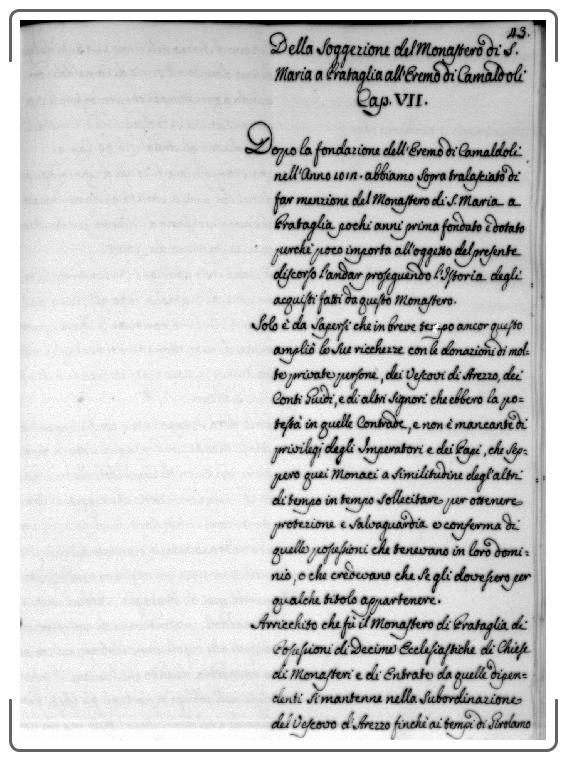 43.
Della Soggezione del Monastero di S.
Maria a Prataglia all'Eremo di Camaldoli
Cap. VII.
Dopo la fondazione dell'Eremo di Camaldoli
nell'Anno 1012. abbiamo sopra tralasciato di
far menzione del Monastero di S. Maria a
Prataglia pochi anni prima fondato e dotato
perche poco importa all'oggetto del presente
discorso l'andar proseguendo l'Istoria degli
acquisti fatti da questo Monastero.
Solo è da Sapersi che in breve tempo ancor questo
ampliò le Sue ricchezze con le donazioni di mol=
te private persone, dei Vescovi di Arezzo, dei
Conti Guidi, e di altri Signori che ebbero la po=
testà in quelle Contrade, e non è mancante di
privilegi degli Imperatori e dei Papi, che Sep=
pero quei Monaci a Similitudine degl'altri
di tempo in tempo Sollecitare per ottenere
protezione e Salvaguardia e conferma di
quelle possessioni che tenevano in loro domi=
nio, o che credevano che Se gli dovessero per
qualche titolo appartenere.
Arricchito che fù il Monastero di Prataglia di
Possessioni di Decime Ecclesiastiche di Chiese
di Monasteri e di Entrate da quelle dipen=
denti Si mantenne nella Subordinazione
del Vescovo d'Arezzo finchè ai tempi di Girolamo